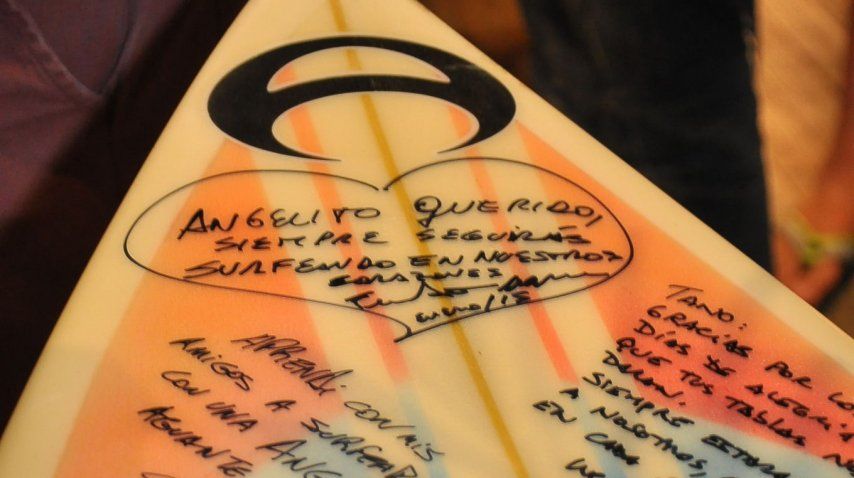 ANGELITO QUERIDO,
SIEMPRE SEGUIRÁS
SURFEANDO EN NUESTROS
CORAZONES
ENERO/15
APRENDI CON MIS
AMIGOS A SURFEAR
CON UNA
AGUANTE
TANO:
GRACIAS POR LOS
DIAS DE ALEGRIA
QUE TUS TABLAS NOS
DARON.
SIEMPRE ESTARA
A NOSOTROS,
EN CADA